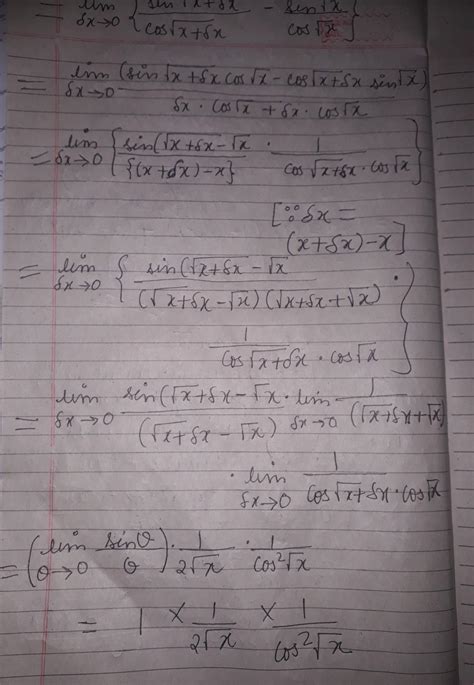 = lim δx→0 { sin√x+δx / cos√x+δx - sin√x / cos√x }
= lim δx→0 (sin√x+δx cos√x - cos√x+δx sin√x) / δx · cos√x+δx · cos√x
= lim δx→0 { sin(√x+δx - √x / {(x+δx)-x} · 1 / cos√x+δx · cos√x }
[∵ δx =
(x+δx)-x]
= lim δx→0 { sin(√x+δx - √x / (√x+δx - √x)(√x+δx + √x) ·
1 / cos√x+δx · cos√x }
= lim δx→0 sin(√x+δx - √x / (√x+δx - √x) · lim δx→0 1 / (√x+δx + √x)
· lim δx→0 1 / cos√x+δx · cos√x
= (lim θ→0 sinθ / θ) · 1 / 2√x · 1 / cos²√x
= 1 × 1 / 2√x × 1 / cos²√x